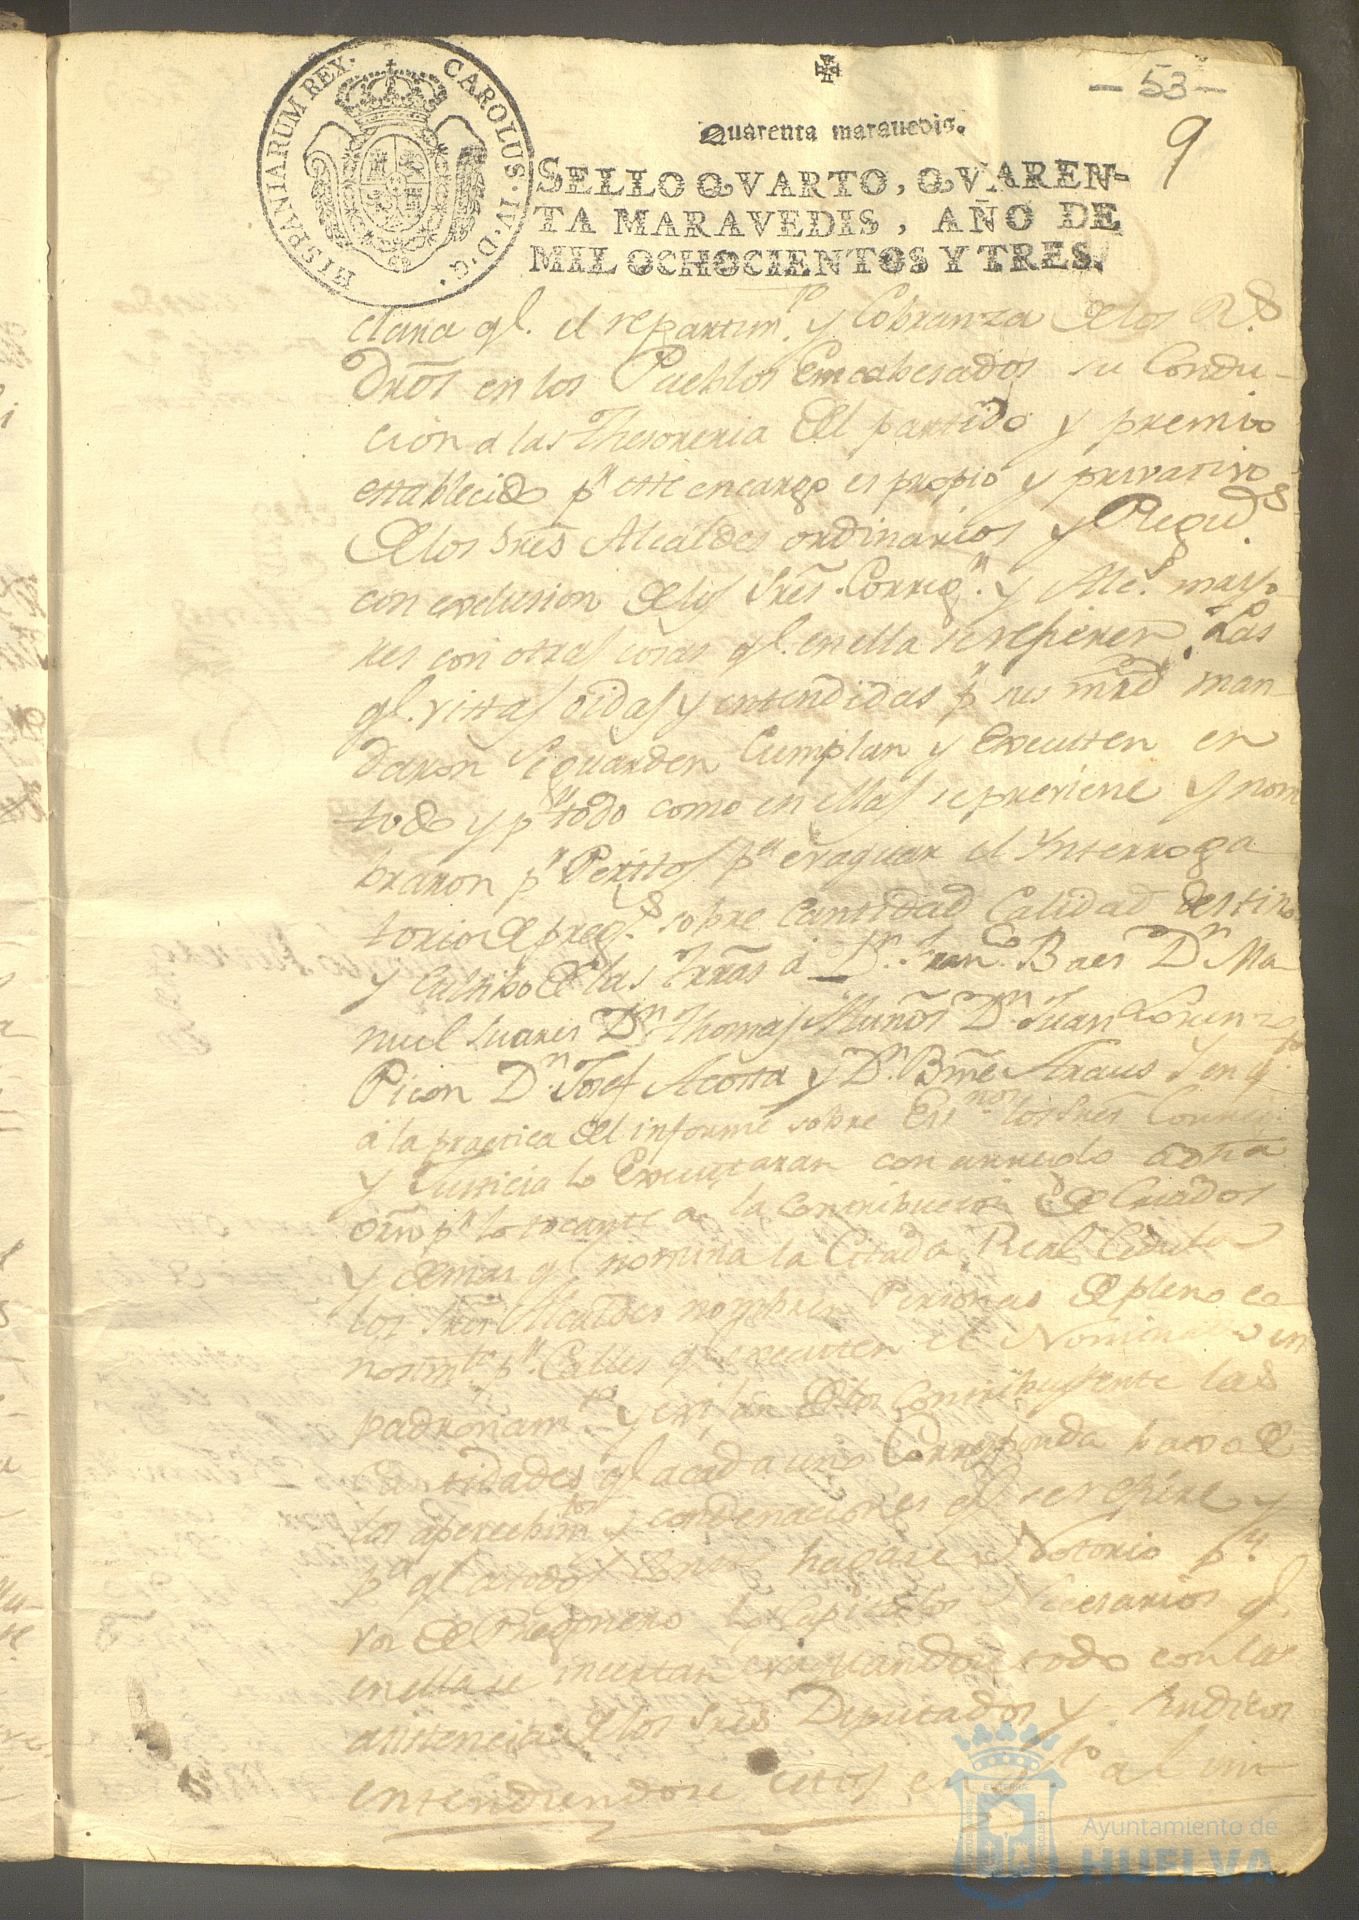 HISPANIARUM REX. CAROLUS. IV. D. G.
- 53 -
9
Quarenta maravedis.
SELLO QVARTO, QVAREN-
TA MARAVEDIS, AÑO DE
MIL OCHOCIENTOS Y TRES.
clara ql. el repartimto. y Cobranza de los Rs.
Dros en los Pueblos Emcabesados su Condu-
cion a las Thesoreria del partido y premio
establecido pr. este encargo es propio y privativo
de los Sres Alcaldes ordinarios y Regids.
con exclusion de los Sres. Corrigrs. y Alcs. mayo-
res con otras cosas ql. en ella se refieren, Las
ql. vistas oidas y entendidas pr. sus mrds man
daron se guarden Cumplan y executen en
todo y pr. todo como en ellas se previene y nom
braron pr. Peritos pa. evaquar el Ynterroga
torio de pregs. sobre Cantidad Calidad destino
y Cultibo de las tierras a Dn. Franco. Baes Dn. Ma-
nuel Suares Dn. Thomas Muños Dn. Juan Lorenzo
Picon Dn. Josef Acosta y Dn. Bme Y en qto.
a la practica del informe sobre los Sres
y Justicia lo Executaran con arreglo a dha
orn pr. lo tocante a la Contribucion de Criados
y demas ql. nomina la Citada Real Cedula
los Sres Alcaldes nombren Personas de pleno co
nosimto. pr. Calles q. executen el em
padronamto. y exijan de los Contribuyente las
cantidades ql. a cada uno Corresponda baxo de
los apercebimtos. y condenaciones ql. se refiere y
pa. ql. a todos Conste hagase Notorio pr.
vos de Pregonero los Capitulos Necesarios ql.
en ella se incertan evaquandose todo con las
asistencia de los Sres Diputados y Sindicos
entendiendose estos en qto. a
Ayuntamiento de
HUELVA